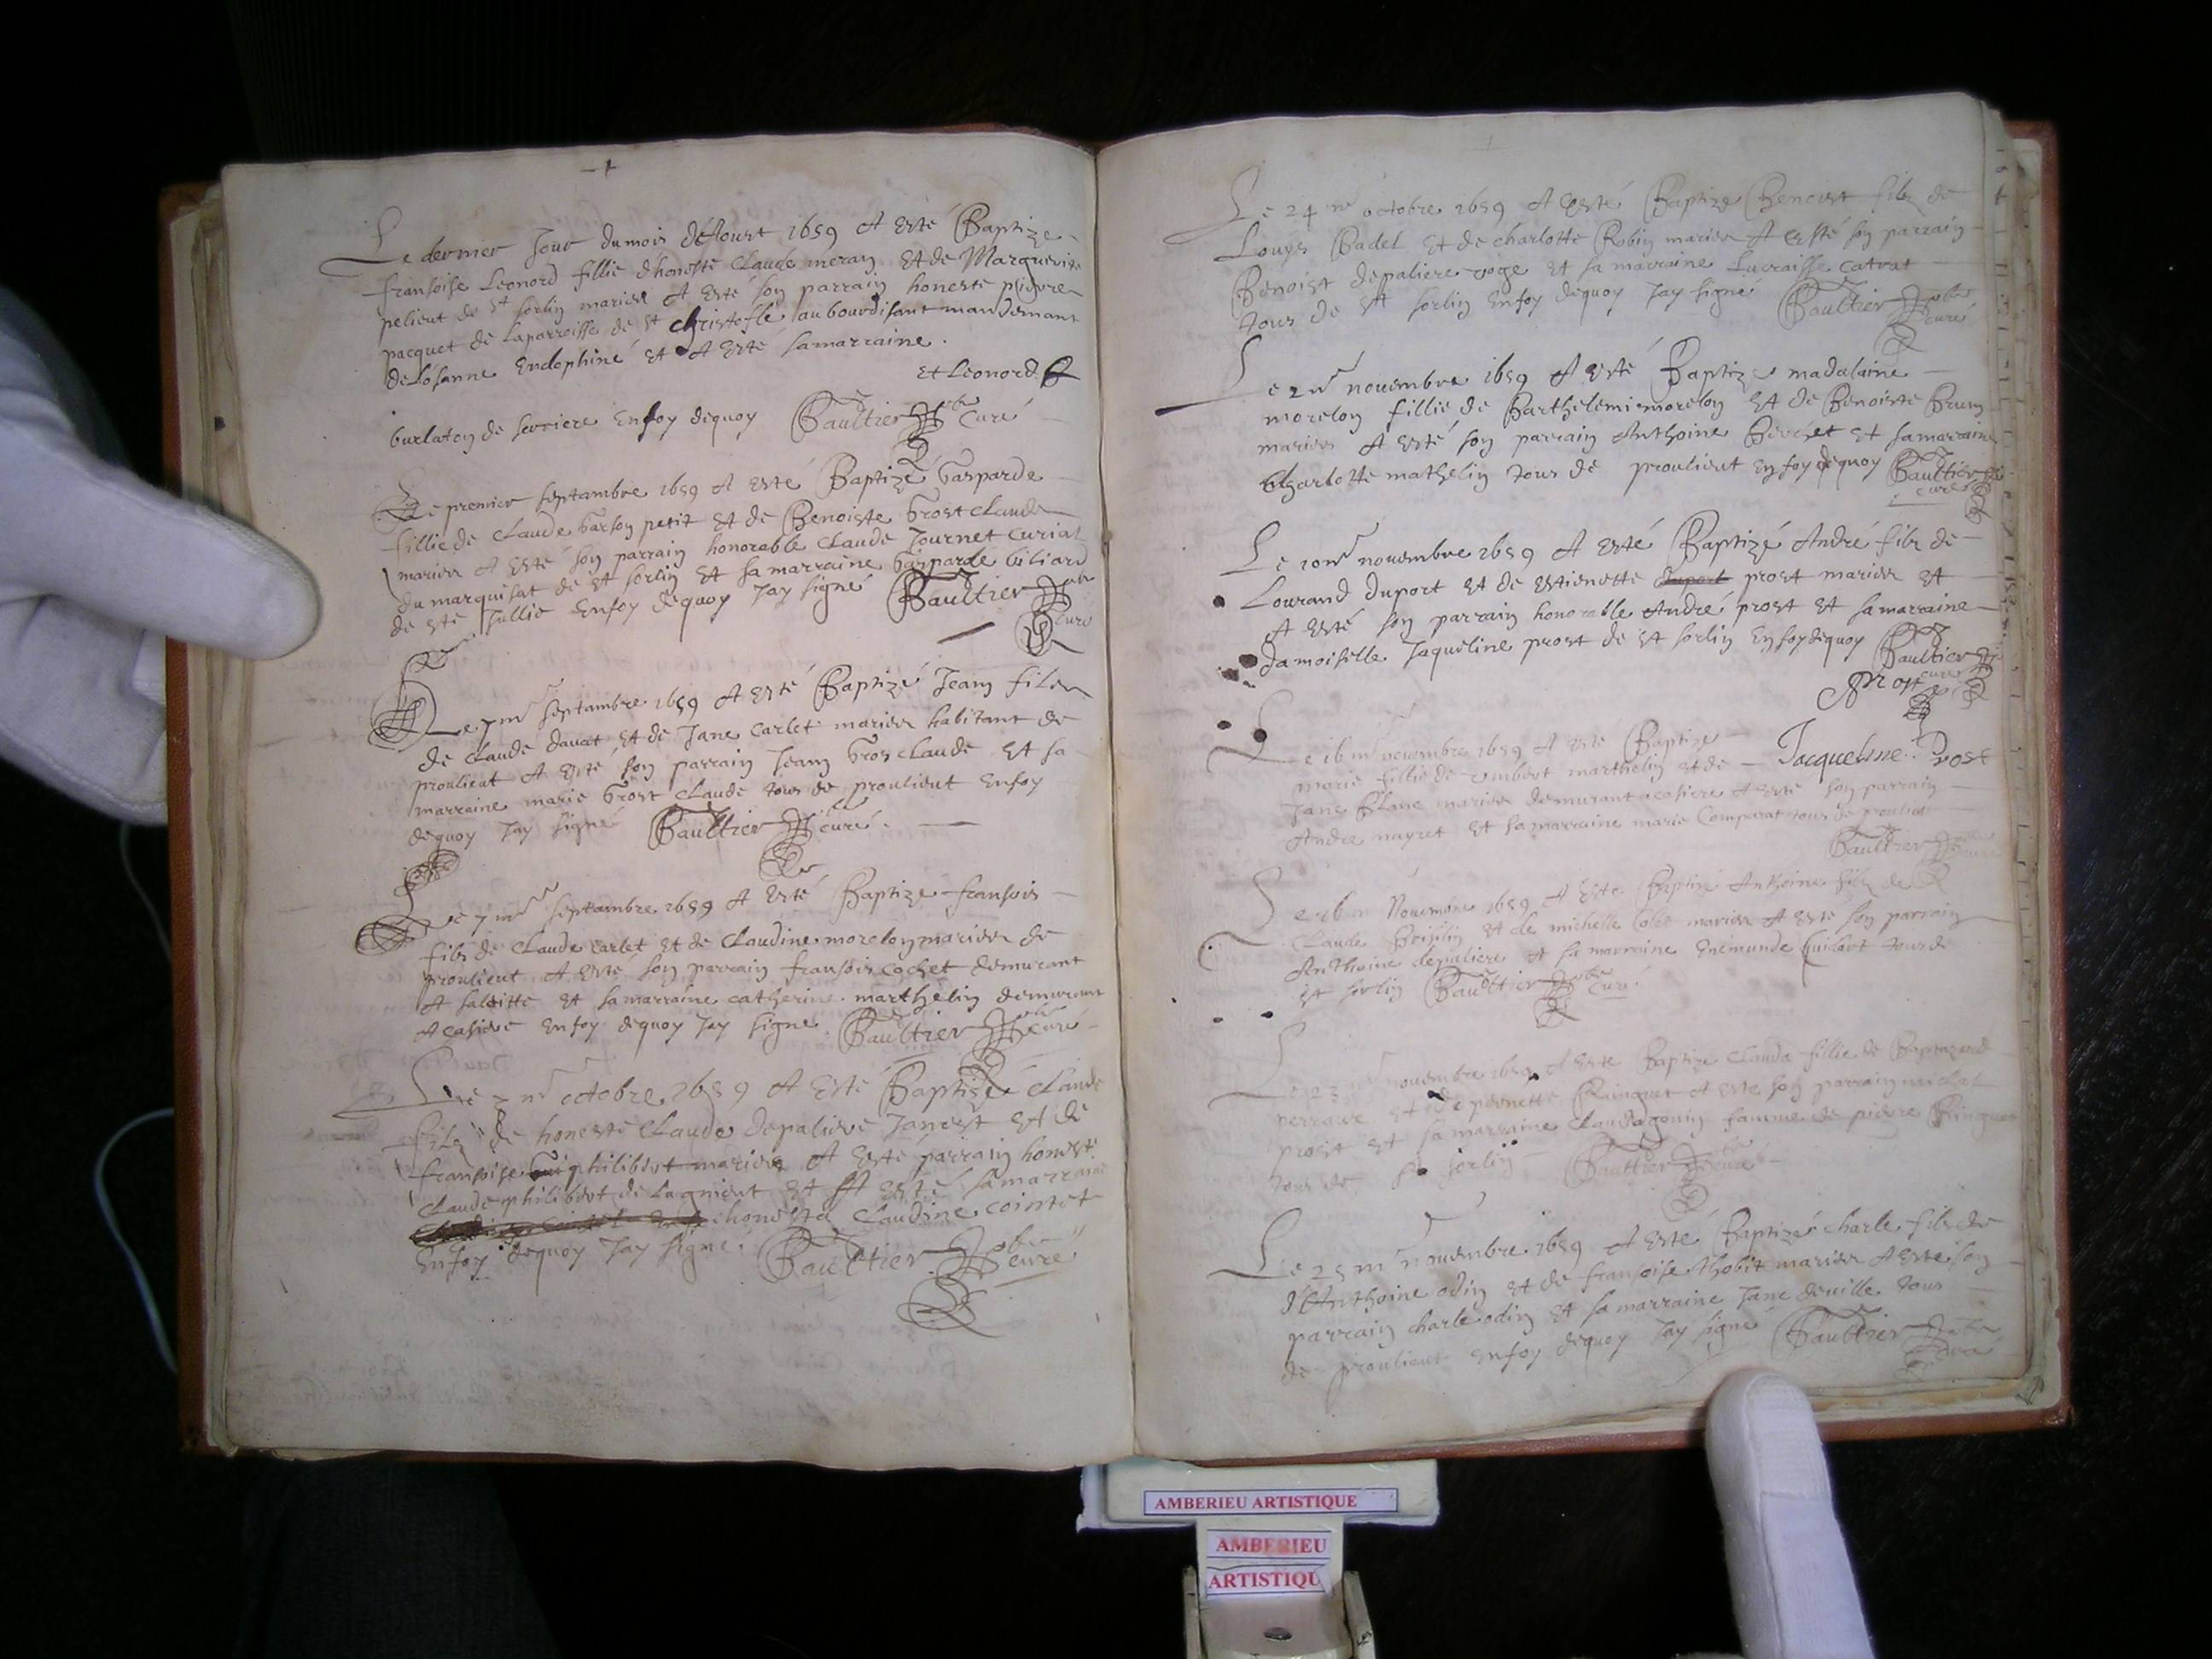 Le dernier Jour du mois d'Aoust 1659 A esté Baptize
fransoise Leonord fillie d'honeste Claude meran et de Marguerite
pelieut de st sorlin mariez A esté son parrain honeste pierre
pacquet de la parroisse de st christofle au bourdisant mandemant
de Losanne en dophiné et A esté sa marraine
et Leonord
burlaton de serriere en foy de quoy Baultier pbre Curé
Le premier septambre 1659 A esté Baptizé Gasparde
fillie de Claude Garson petit et de Benoiste Grost Claude
mariez A esté son parrain honorable Claude Journet Curial
du marquisat de st sorlin et sa marraine Gasparde biliard
de ste Jullie en foy de quoy Jay signé Baultier pbre
curé
Le 7me septambre 1659 A esté Baptizé Jean filz
de Claude davat et de Jane Carlet mariez habitant de
proulieut A esté son parrain Jean Gros Claude et sa
marraine marie Grost Claude tous de proulieut en foy
de quoy Jay signé Baultier pbre curé
Le 7me septambre 1659 A esté Baptizé fransois
filz de Claude Carlet et de Claudine morelon mariez de
proulieut A esté son parrain fransois cochet demurant
A salette et sa marraine catherine marthelin demurant
A casiere en foy de quoy Jay signe Baultier pbre curé
Le 2me octobre 1659 A esté Baptizé Claude
filz de honeste Claude depaliere Janest et de
fransoise philibert mariez A esté parrain honeste
Claude philibert de Lagnieut et A esté sa marraine
honeste Claudine cointet
en foy de quoy Jay signé Baultier pbre curé
Le 24me octobre 1659 A esté Baptizé Benoist filz de
Louys Badel et de charlotte Robin mariez A esté son parrain
Benoist depaliere voge et sa marraine Lucraisse catrat
tous de st sorlin en foy de quoy Jay signé Baultier pbre
curé
Le 2me novembre 1659 A esté Baptizé madalaine
morelon fillie de Barthelemi morelon et de Benoiste Brun
mariez A esté son parrain Anthoine Berchet et sa marraine
Charlotte mathelin tous de proulieut en foy de quoy Baultier pbre
curé
Le 10me novembre 1659 A esté Baptizé André filz de
Lourand duport et de estienette duport prost mariez et
A esté son parrain honorable André prost et sa marraine
damoiselle Jaqueline prost de st sorlin en foy de quoy Baultier pbre
curé
Prost
Le 16me novembre 1659 A esté Baptize
Jacqueline Prost
marie fillie de umbert marthelin et de
Jane Blanc mariez demurant a casiere A esté son parrain
Andre nayret et sa marraine marie Comparat tous de proulieut
Baultier pbre curé
Le 16me Novembre 1659 A este Baptizé Anthoine filz de
Claude Brisilin et de michelle Colet mariez A esté son parrain
Anthoine depaliere et sa marraine Enemunde Guilart tous de
st sorlin Baultier pbre Curé
Le 23me novembre 1659 A este Baptize Clauda fillie de Baptazard
perraut et de pernette Ringuet A este son parrain michel
prost et sa marraine Clauda gonin famme de pierre Ringuet
tous de st sorlin Baultier pbre curé
Le 25me novembre 1659 A esté Baptizé charle filz de
d'Anthoine odin et de fransoise Thobit mariez A esté son
parrain charle odin et sa marraine Jane deville tous
de proulieut en foy de quoy Jay signé Baultier pbre
curé
AMBERIEU ARTISTIQUE
AMBERIEU
ARTISTIQU